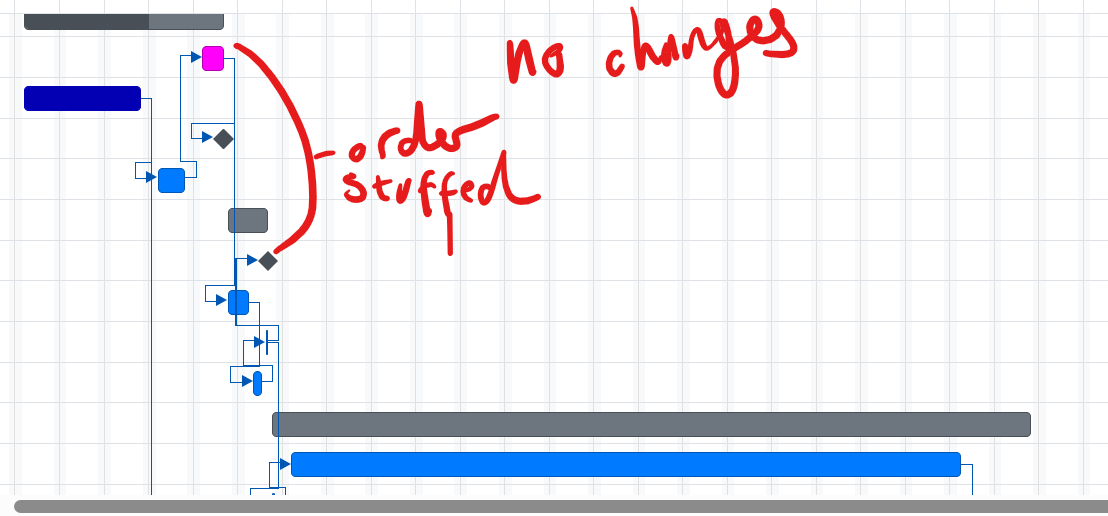 no changes
- order
stuffed